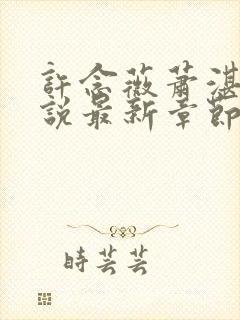 許念薇蕭湛
說最新章節
時芸芸